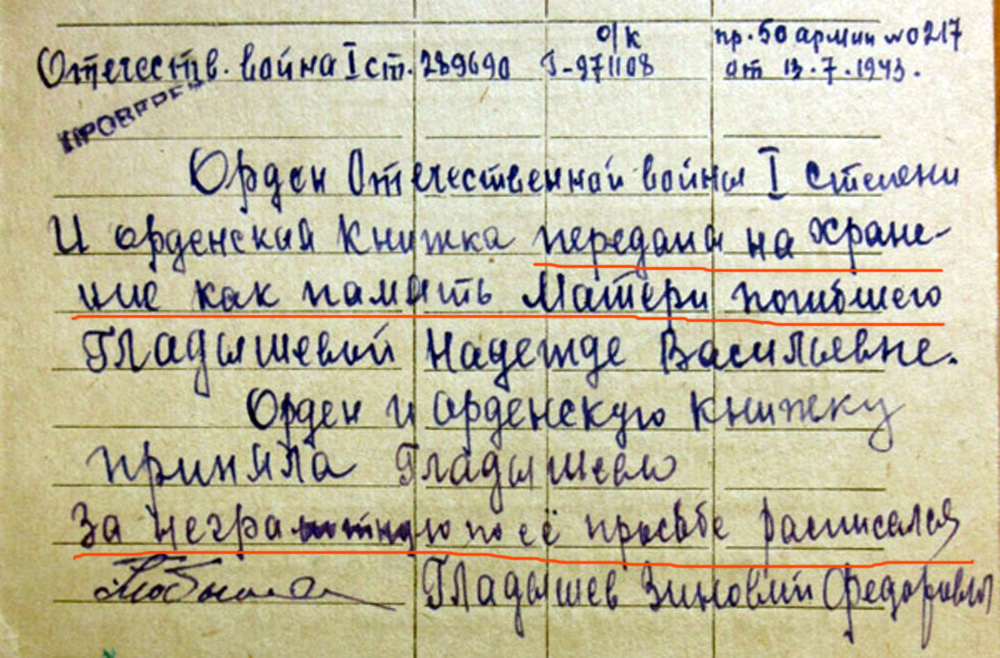 о/к пр. 50 армии №0217
Отечеств. война I ст. 289690 Г-971108 от 13.7.1943.
ПРОВЕРЕ
Орден Отечественной войны I степени
И орденская книжка передана на хране-
ние как память Матери погибшего
Гладышевой Надежде Васильевне.
Орден и орденскую книжку
приняла Гладышева
За неграмотную по её просьбе расписался
Гладышев Зиновий Федорович